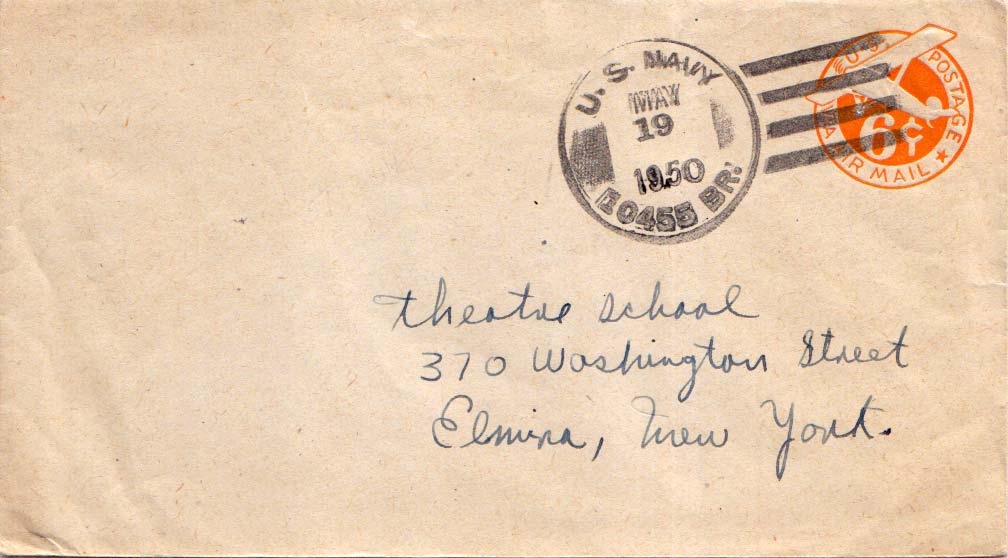 U. S. NAVY
MAY
19
1950
10455 BR.
U.S. POSTAGE
VIA AIR MAIL
6¢
theatre school
370 Washington Street
Elmira, New York.